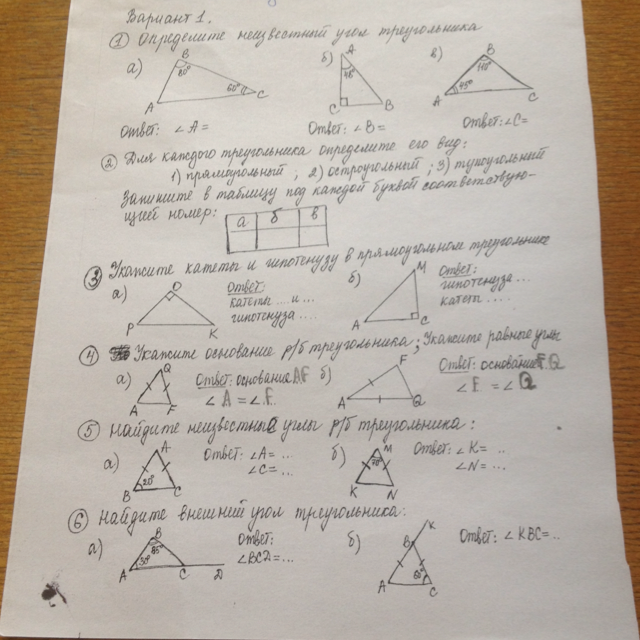 Вариант 1.
① Определите неизвестный угол треугольника
а) б) в)
B 80° 60° A C
A 48° C B
B 110° 45° A C
Ответ: ∠A= Ответ: ∠B= Ответ: ∠C=
② Для каждого треугольника определите его вид:
1) прямоугольный, 2) остроугольный; 3) тупоугольный
Запишите в таблицу под каждой буквой соответствую-
щий номер:
а б в
③ Укажите катеты и гипотенузу в прямоугольном треугольнике
а) O P K
Ответ:
катеты ... и ...
гипотенуза ....
б) M A C
Ответ:
гипотенуза ...
катет ....
④ Укажите основание р/б треугольника; Укажите равные углы
а) Q A F
Ответ: основание AF
∠A = ∠F
б) F A Q
Ответ: основание FQ
∠F = ∠Q
⑤ Найдите неизвестные углы р/б треугольника:
а) A B 20° C
Ответ: ∠A= ...
∠C= ...
б) M 70° K N
Ответ: ∠K= ..
∠N= ...
⑥ Найдите внешний угол треугольника:
а) B 85° 30° A C D
Ответ:
∠BCD=...
б) K B A C
Ответ: ∠KBC=..